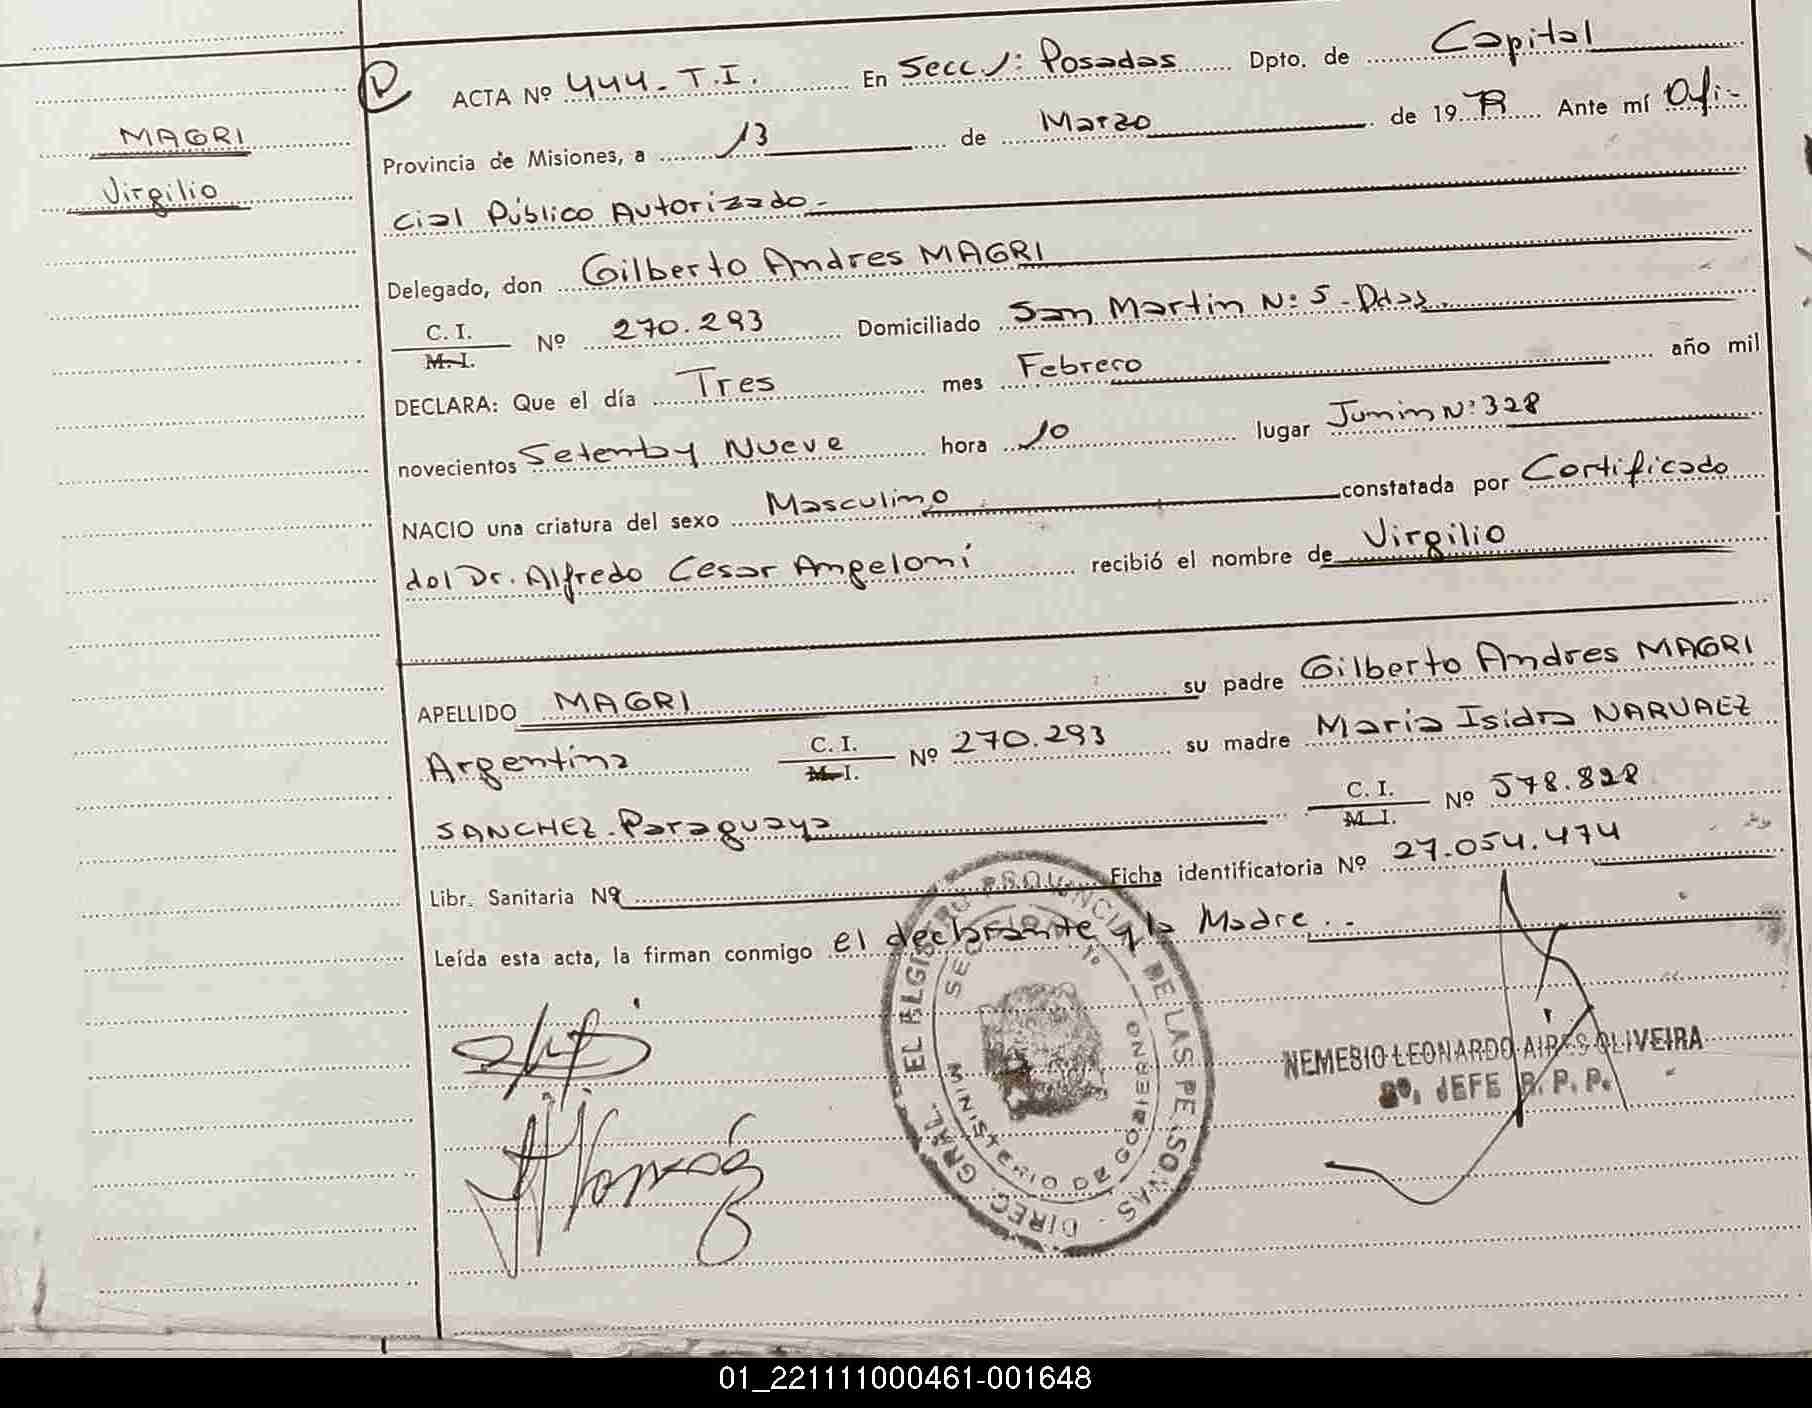 MAGRI
Virgilio
ACTA Nº 444-T.I. En Secc. 1: Posadas Dpto. de Capital
Provincia de Misiones, a 13 de Marzo de 1979 Ante mí Ofi-
cial Público Autorizado.
Delegado, don Gilberto Andres MAGRI
C. I. / M. I. Nº 270.293 Domiciliado San Martin N: 5 - Pdas.
DECLARA: Que el día Tres mes Febrero año mil
novecientos Setenta y Nueve hora 10 lugar Junin Nº 328
NACIO una criatura del sexo Masculino constatada por Certificado
del Dr. Alfredo Cesar Angeloni recibió el nombre de Virgilio
APELLIDO MAGRI su padre Gilberto Andres MAGRI
Argentina C. I. / M. I. Nº 270.293 su madre Maria Isidra NARVAEZ
SANCHEZ - Paraguaya C. I. / M. I. Nº 578.828
Libr. Sanitaria Nº Ficha identificatoria Nº 27.054.474
Leída esta acta, la firman conmigo el declarante y la Madre.
DIREC. GRAL. DEL REGISTRO PROVINCIAL DE LAS PERSONAS
MINISTERIO DE GOBIERNO
NEMESIO LEONARDO AIRES OLIVEIRA
JEFE R. P. P.
01_221111000461-001648